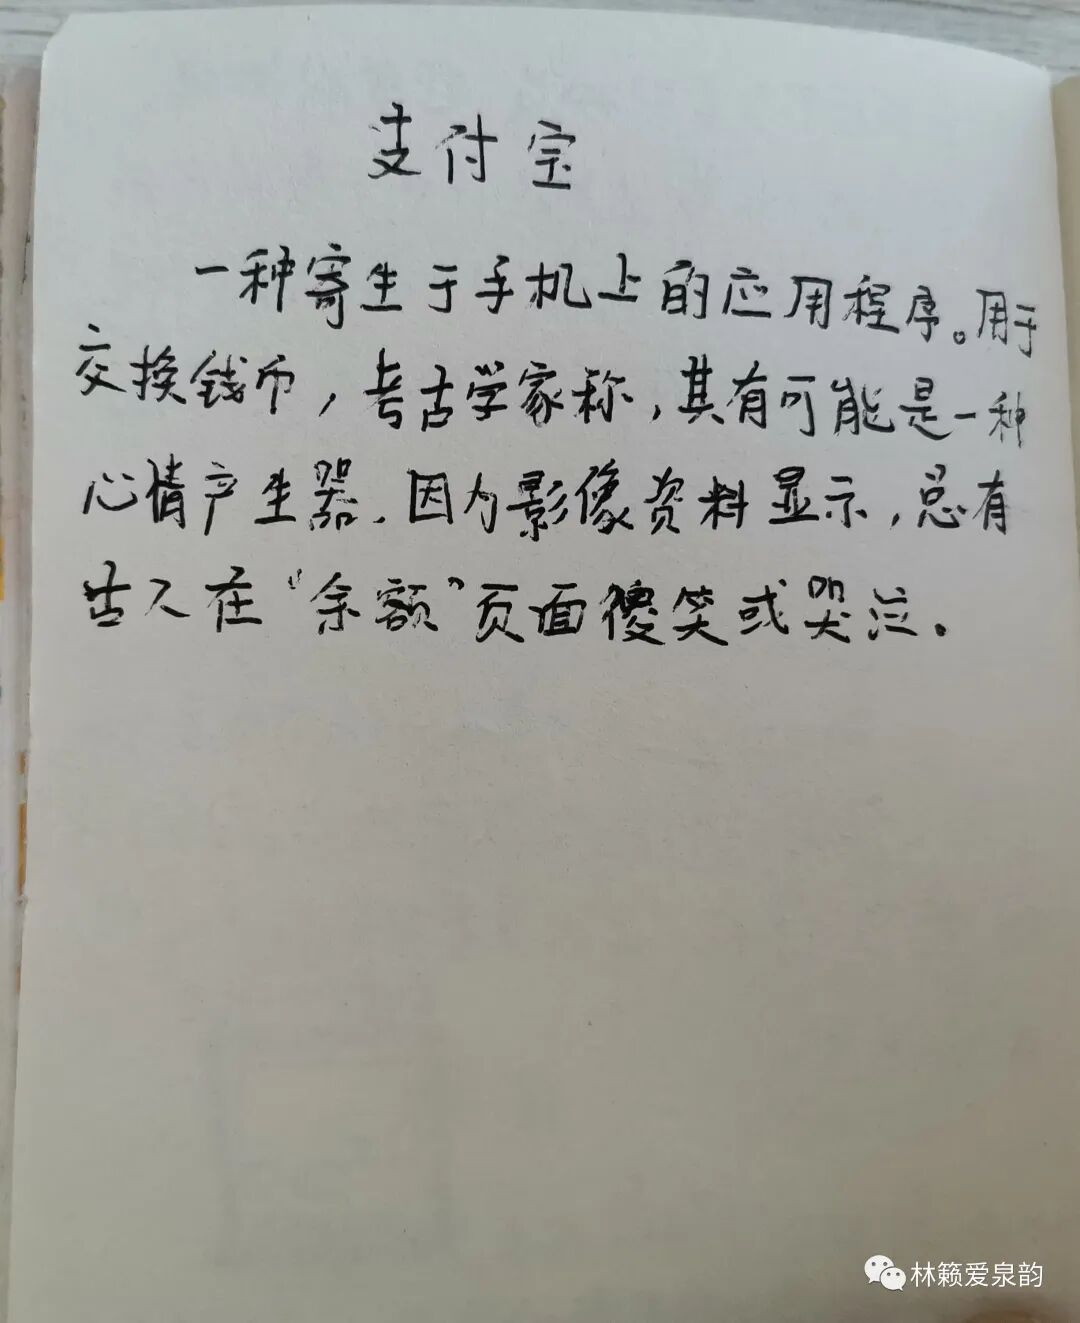 支付宝
一种寄生于手机上的应用程序。用于
交换钱币，考古学家称，其有可能是一种
心情产生器.因为影像资料显示，总有
古人在“余额”页面傻笑或哭泣。
林籁爱泉韵